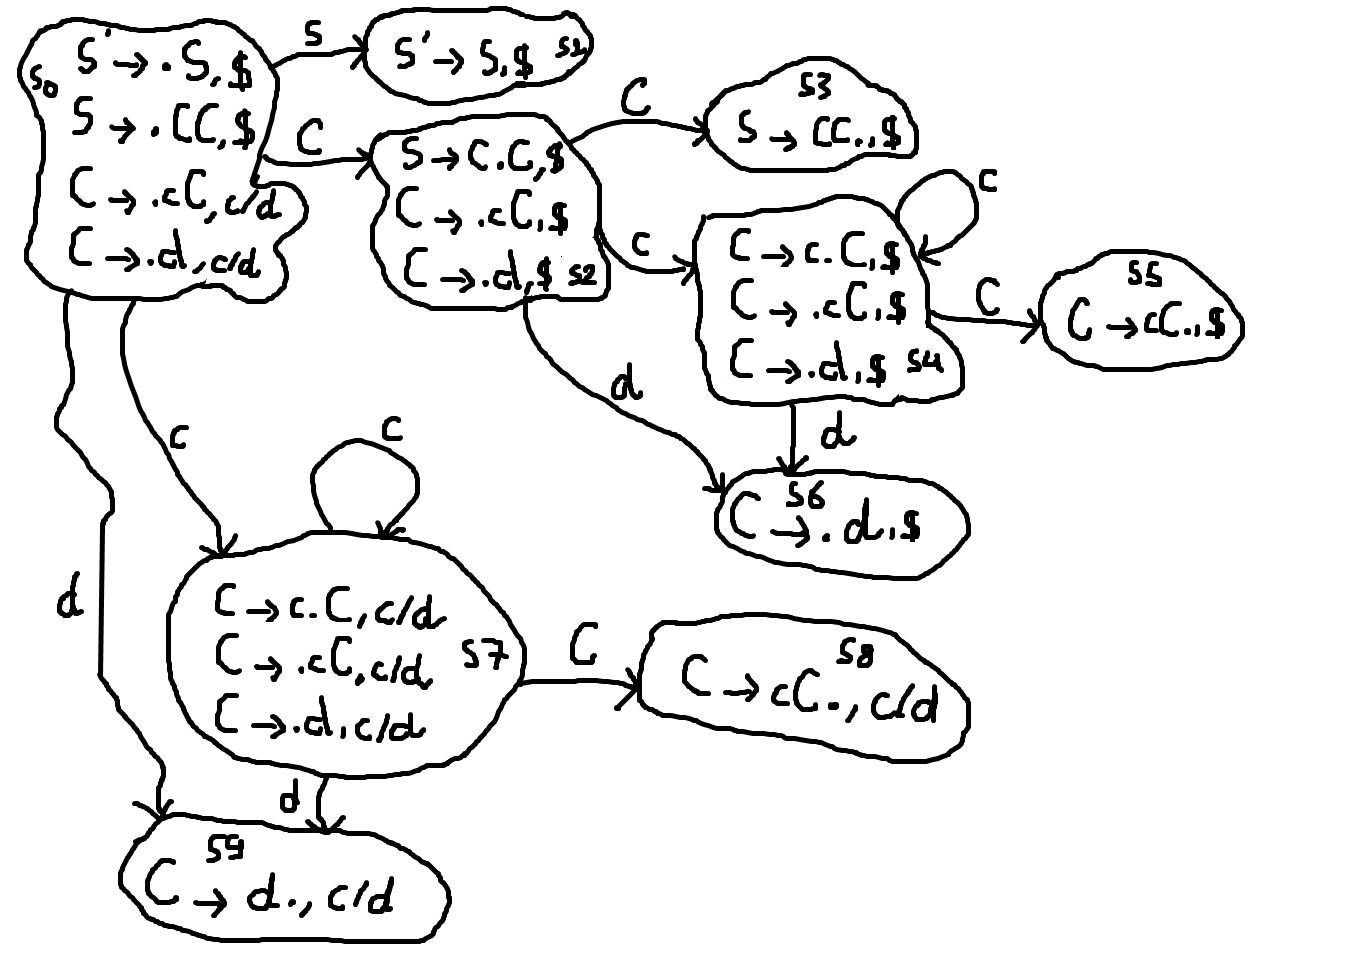 S0
S' → .S,$
S → .CC,$
C → .cC,c/d
C → .d,c/d
S
S' → S,$ S1
C
S → C.C,$
C → .cC,$
C → .d,$ S2
C
S3
S → CC.,$
c
C → c.C,$
C → .cC,$
C → .d,$ S4
c
C
S5
C → cC.,$
d
d
S6
C → .d,$
c
c
C → c.C,c/d
C → .cC,c/d S7
C → .d,c/d
C
S8
C → cC.,c/d
d
d
S9
C → d.,c/d